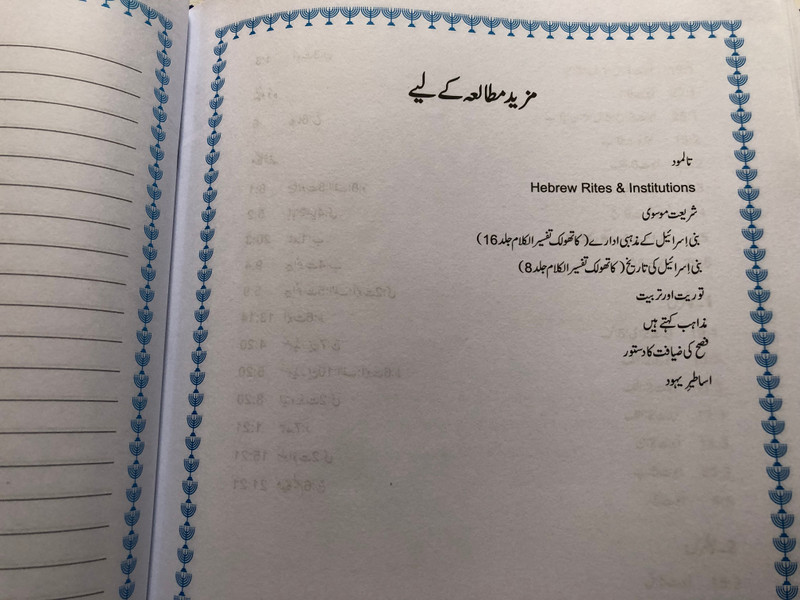 مزید مطالعہ کے لیے
تالمود
Hebrew Rites & Institutions
شریعت موسوی
بنی اِسرائیل کے مذہبی ادارے (کاتھولک تفسیر الکلام جلد 16)
بنی اِسرائیل کی تاریخ (کاتھولک تفسیر الکلام جلد 8)
توریت اور تربیت
مذاہب کہتے ہیں
فصح کی ضیافت کا دستور
اساطیرِ یہود